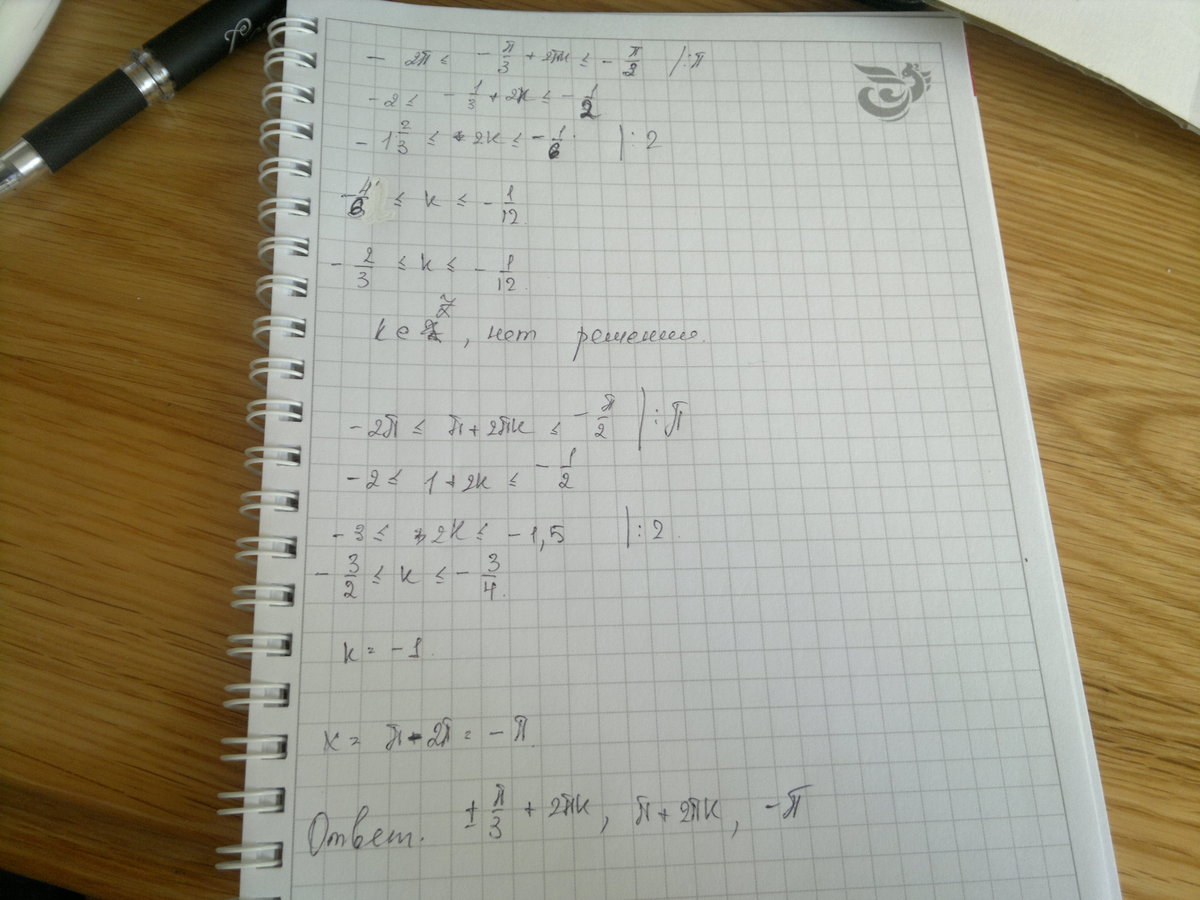 - 2π ≤ - π/3 + 2πк ≤ - π/2 | : π
- 2 ≤ - 1/3 + 2к ≤ - 1/2
- 1 2/3 ≤ 2к ≤ - 1/6 | : 2
- 4/6 ≤ к ≤ - 1/12
- 2/3 ≤ к ≤ - 1/12
к ∈ Z, нет решения.
- 2π ≤ π + 2πк ≤ - π/2 | : π
- 2 ≤ 1 + 2к ≤ - 1/2
- 3 ≤ 2к ≤ - 1,5 | : 2
- 3/2 ≤ к ≤ - 3/4
к = - 1
x = π - 2π = - π
Ответ. ± π/3 + 2πк, π + 2πк, - π